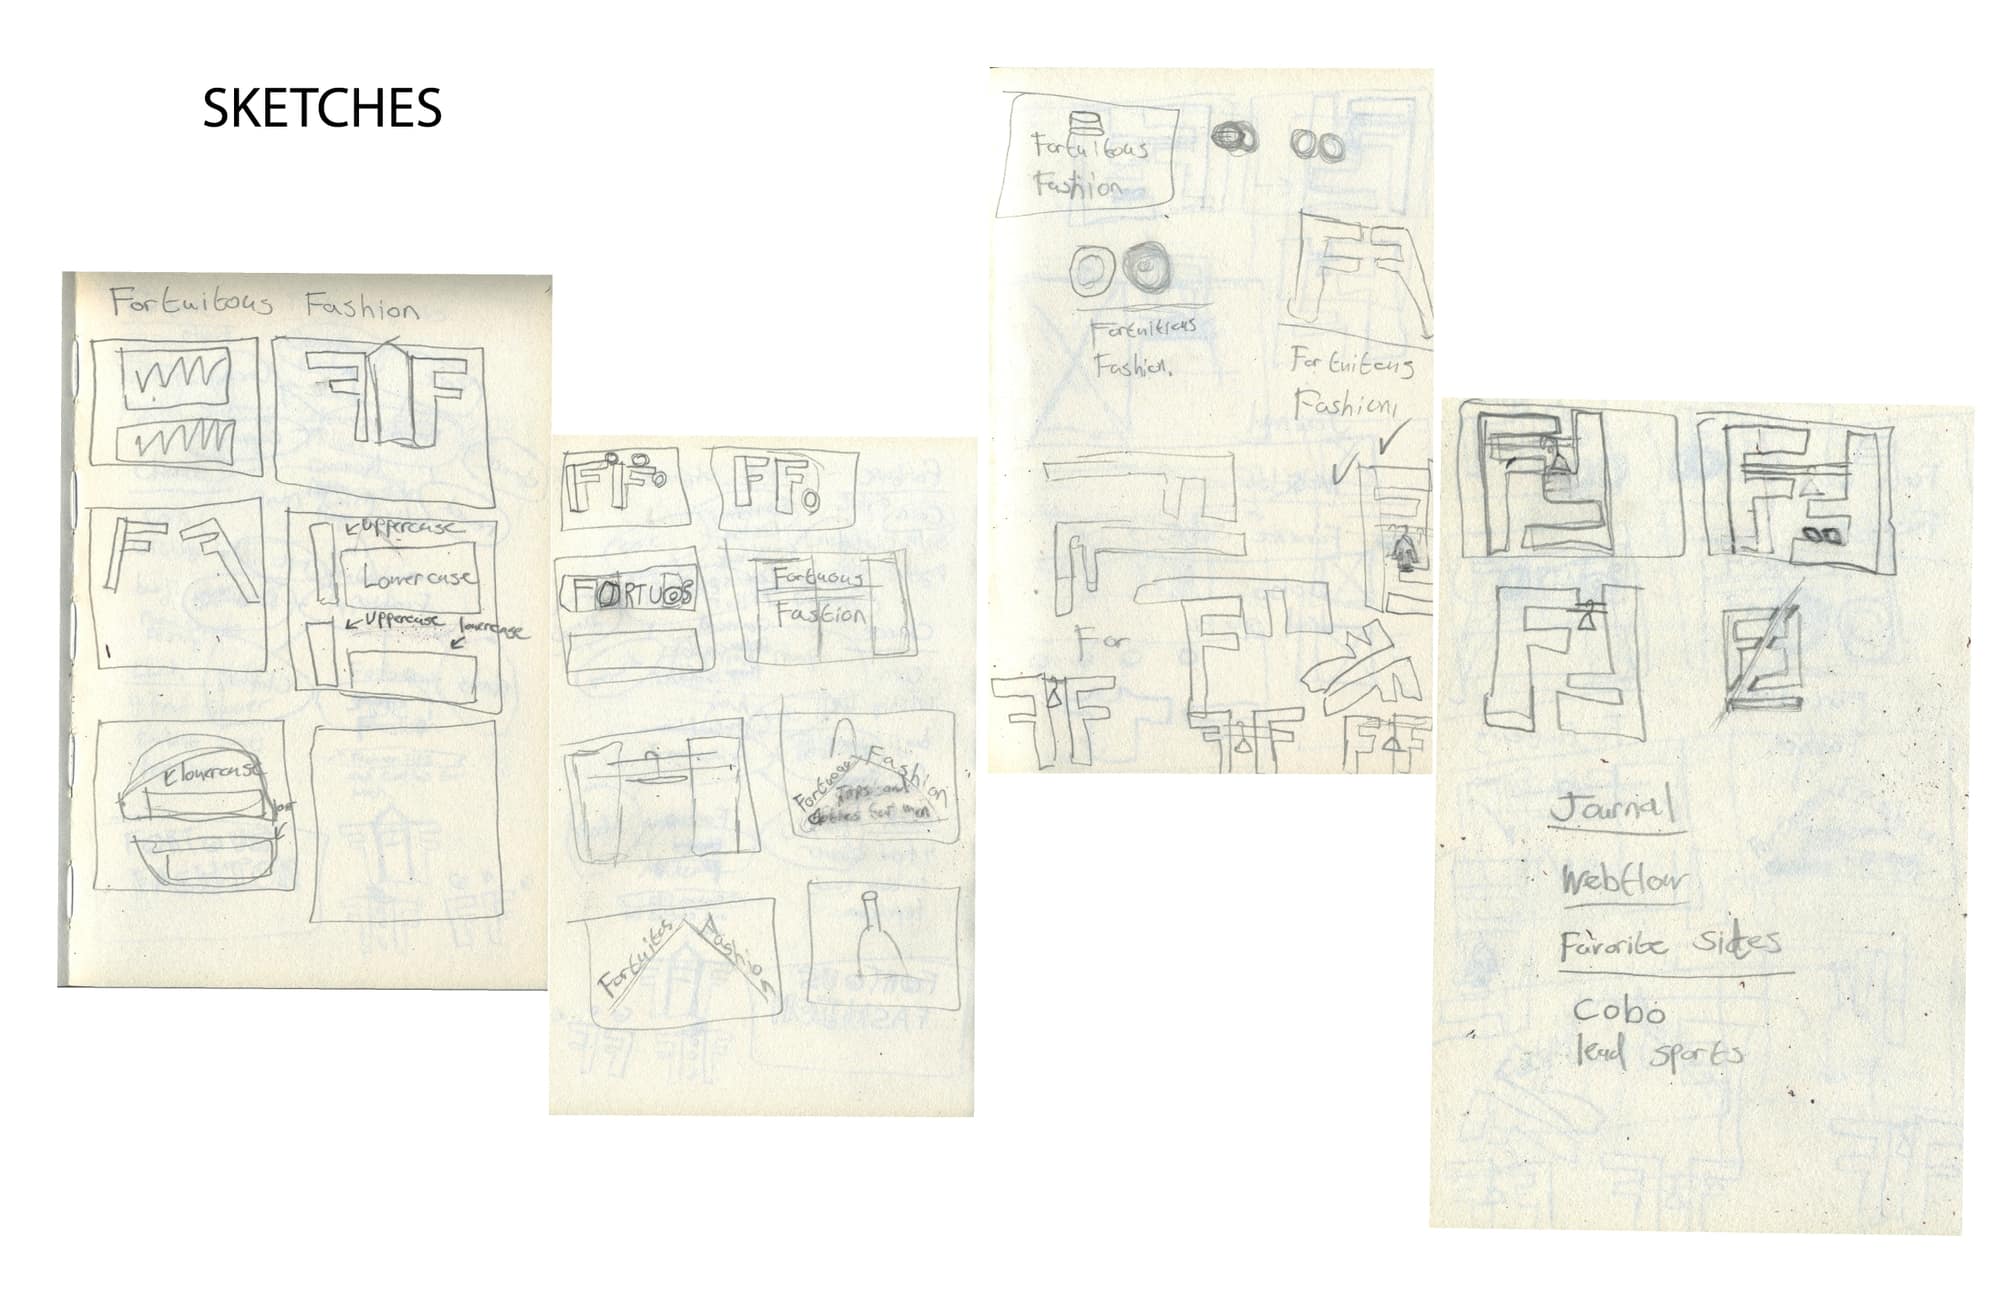 SKETCHES
Fortuitous Fashion
FF
FF
uppercase
Lowercase
uppercase lowercase
lowercase
FF
FF
FORTUOS
Fortuous
Fastion
Fortuous Fashion
Tops and
for men
Fortuitos Fashios
Fortuitous
Fashion
Fortuitious
Fashion.
FF
Fortuitous
Fashion
For
FF
FF
FF
Journal
Webflow
Favorite Sites
Cobo
lead sports